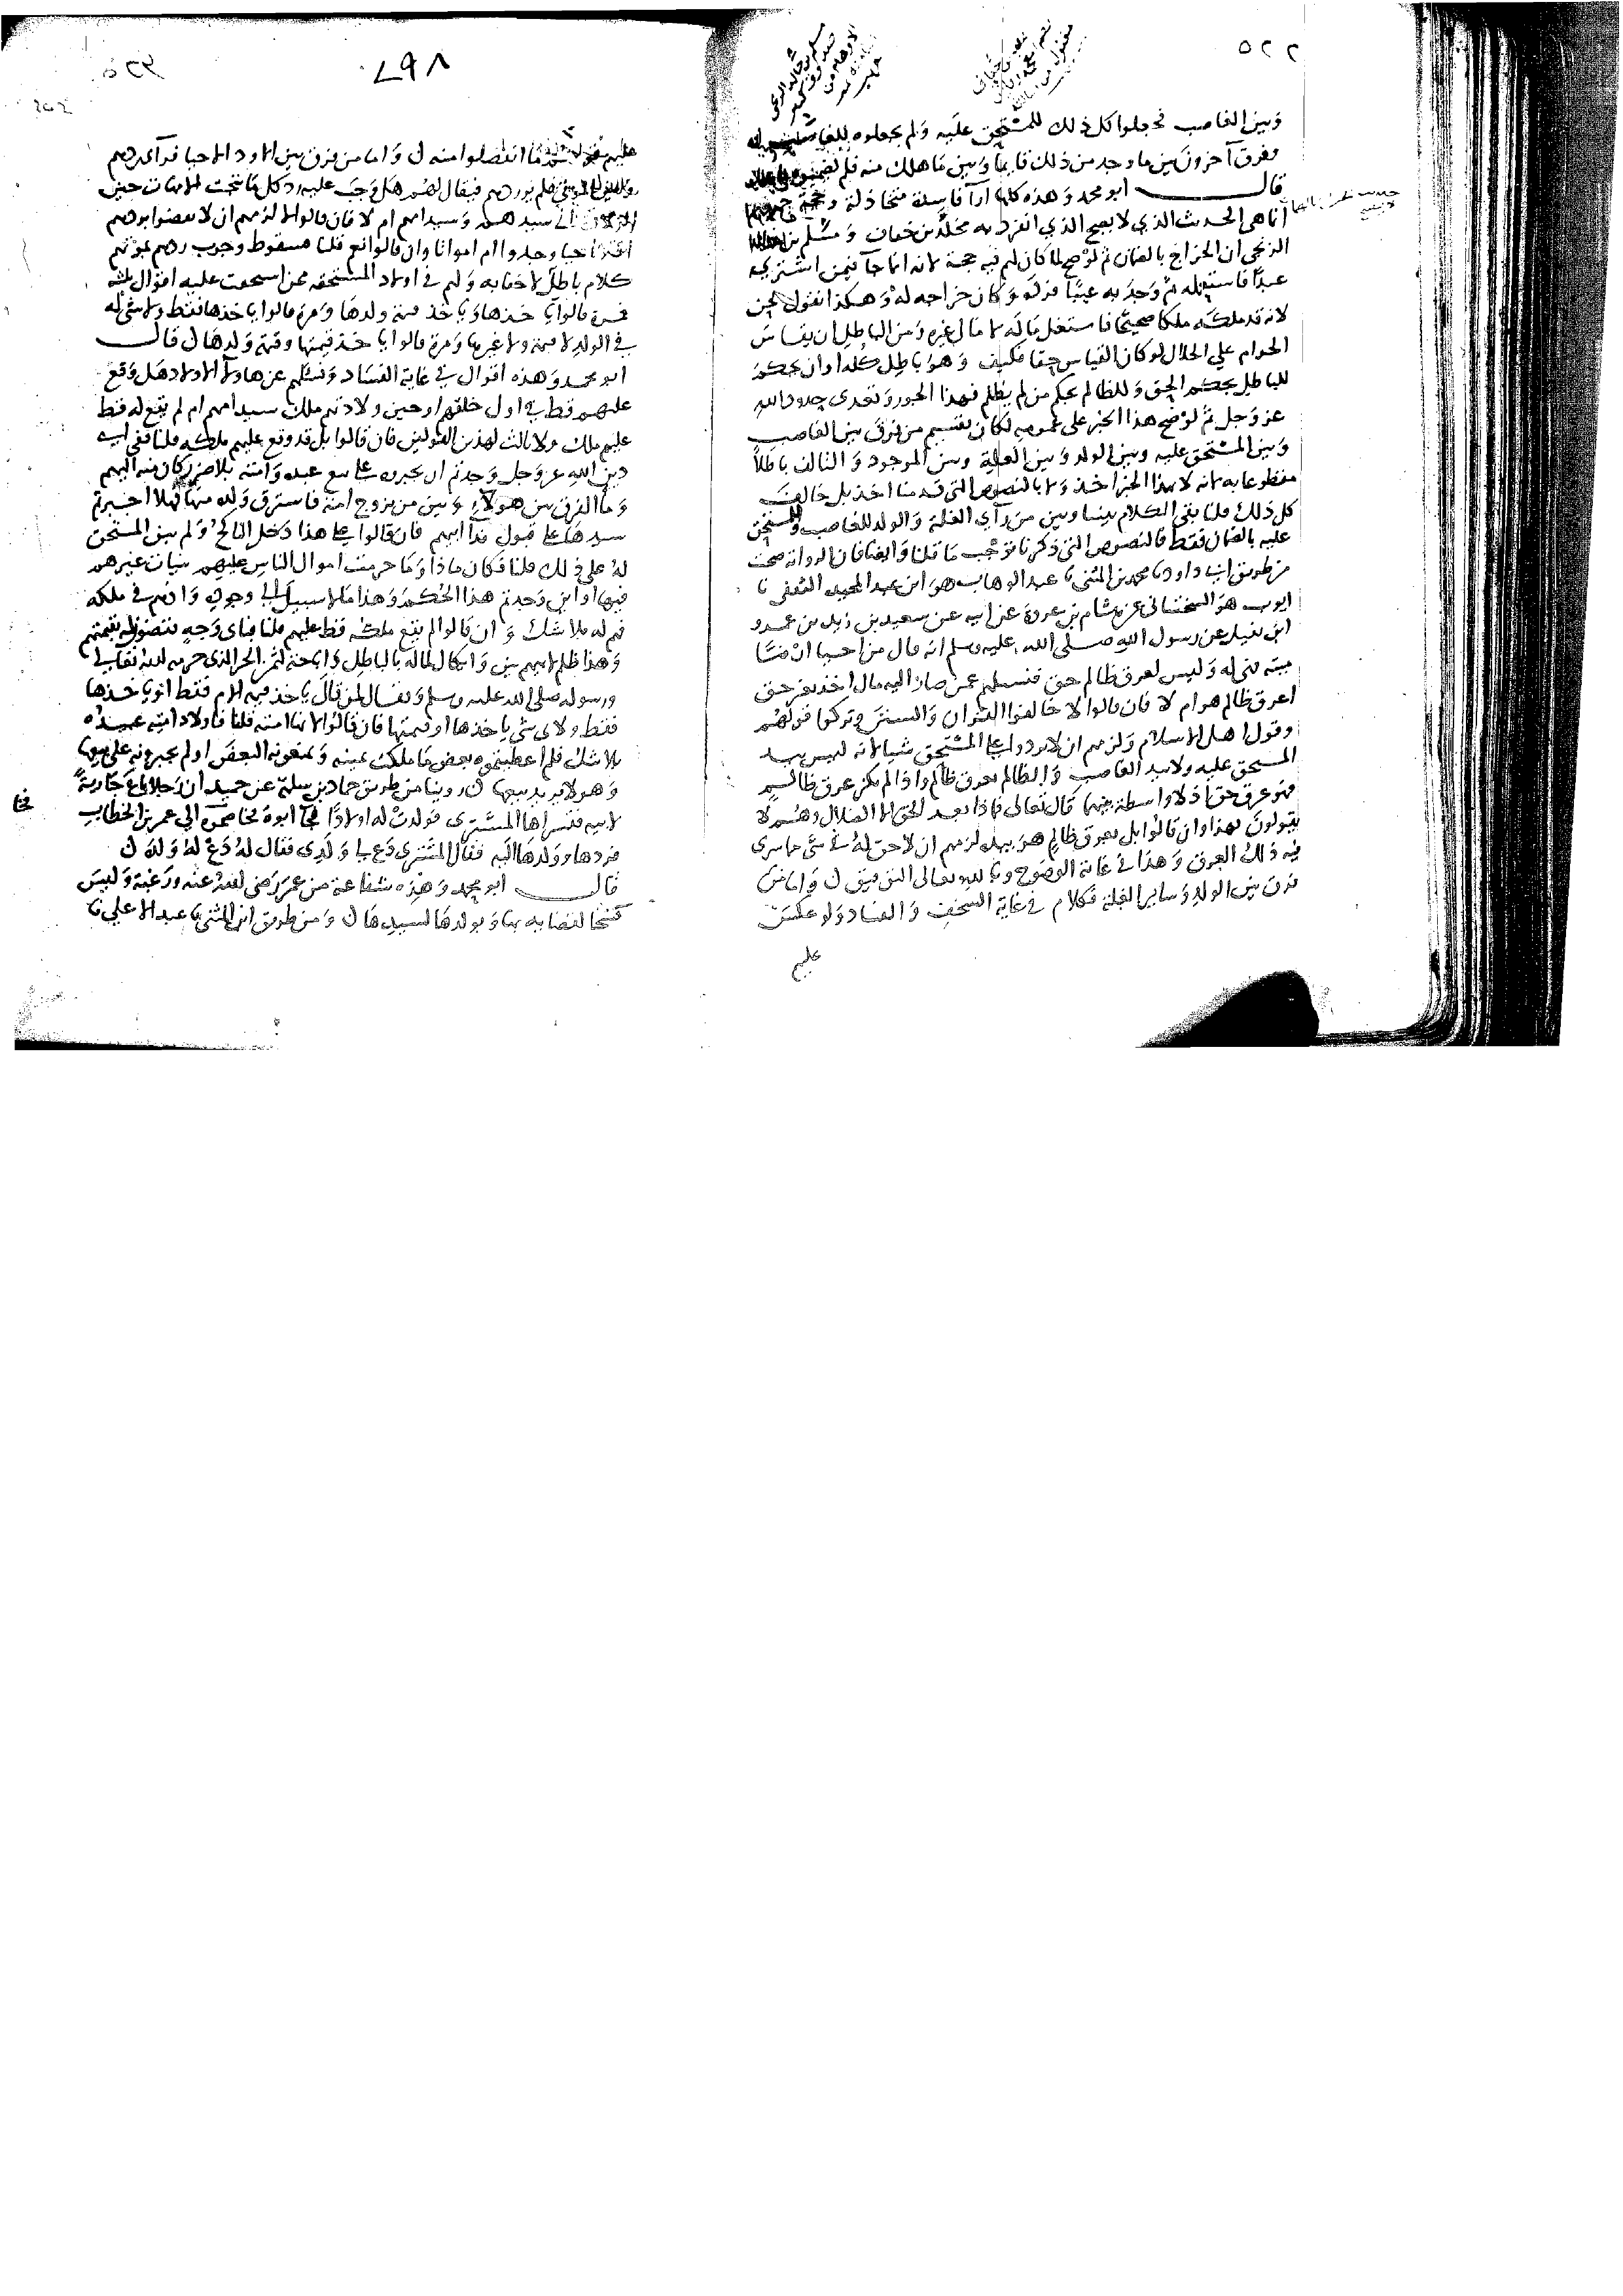 ٥٢٢
وبين الغاصب فجعلوا كل ذلك للمستحق عليه ولم يجعلوه للغاصب
وفرق آخرون بين ما وجد من ذلك قايما وبين ما هلك منه فلم يضمنوه
قال ابو محمد وهذه كلها آرآ فاسدة متخاذلة وحجة جميعهم
انما هي الحديث الذي لا يصح الذي انفرد به مخلد بن خفاف ومسلم بن خالد
الزنجي ان الخراج بالضمان ثم لو صح لما كان لهم فيه حجة لانه انما جآ فيمن اشترى
عبدا فاستغله ثم وجد به عيبا فرده وكان خراجه له وهكذا نقول نحن
لانه قد ملكه ملكا صحيحا فاستغل ماله لا مال غيره ومن الباطل ان يقاس
الحرام علي الحلال لو كان القياس حقا فكيف وهو باطل كله او ان يحكم
للباطل بحكم الحق وللظالم بحكم من لم يظلم فهذا الجور وتعدى حدود الله
عز وجل ثم لو صح هذا الخبر على عمومه لكان تقسيم من فرق بين الغاصب
وبين المستحق عليه وبين الولد وبين الغلة وبين الموجود والتالف باطلا
مقطوعا به لانه لا بهذا الخبر اخذ ولا بالنصوص التي قدمنا اخذ بل خالف
كل ذلك قلنا بقي الكلام بيننا وبين من رآي الغلة والولد للغاصب وللمستحق
عليه بالضمان فقط فالنصوص التي ذكرنا توجب ما قلنا وايضا فان الرواية صحت
من طريق ابي داود نا محمد بن المثني نا عبد الوهاب هو ابن عبد المجيد الثقفي نا
ايوب هو السختياني عن هشام بن عروة عن ابيه عن سعيد بن زيد بن عمرو
ابن نفيل عن رسول الله صلى الله عليه وسلم انه قال من احيا ارضا
ميتة فهي له وليس لعرق ظالم حق فنسلهم عمن صار اليه مال اخذ بغير حق
اعرق ظالم هو ام لا فان قالوا لا خالفوا القران والسنن وتركوا قولهم
وقول اهل الاسلام ولزمهم ان لا يردوا علي المستحق شيا لانه ليس بيد
المستحق عليه ولا بيد الغاصب ولا الظالم بعرق ظالم واذا لم يكن عرق ظالم
فهو عرق حق اذ لا واسطة بينهما قال تعالى فماذا بعد الحق الا الضلال وهم لا
يقولون بهذا وان قالوا بل بعرق ظالم هو بيده لزمهم ان لا حق له في شي مما سري
فيه ذلك العرق وهذا في غاية الوضوح وبالله تعالى التوفيق واما من
فرق بين الولد وساير الغلة فكلام في غاية السخف والفساد ولو عكس
عليهم
٥٢٣
٧٦٨
ما انفصلوا منه واما من فرق بين الاولاد الاحيا فرآي ردهم
وبين الموتي فلم ير ردهم فيقال لهم هل وجب عليه رد كل ما نتجت الامهات حين
الولادة الى سيدهم وسيد امهم ام لا فان قالوا لا لزمهم ان لا يقضوا بردهم
احيا وجدوا ام امواتا وان قالوا نعم قلنا فسقوط وجوب ردهم بموتهم
كلام باطل لا خفا به ولهم في اولاد المستحقه ممن استحقت عليه اقوال ثلثه
فمرة قالوا ياخذها وياخذ قيمة ولدها ومرة قالوا ياخذها فقط ولا شي له
في الولد لا قيمة ولا غيرها ومرة قالوا ياخذ قيمتها وقيمة ولدها قال
ابو محمد وهذه اقوال في غاية الفساد ونسلهم عن هاولآ الاولاد هل وقع
عليهم قط في اول خلقهم او حين ولادتهم ملك سيد امهم ام لم يقع له قط
عليهم ملك ولا ثالث لهذين القولين فان قالوا بل قد وقع عليهم ملكه قلنا ففي اي
دين الله عز وجل وجدتم ان يجبروه علي بيع عبده وامته بلا ضرر كان منه اليهم
وما الفرق بين هولاء وبين من تزوج امة فاسترق ولده منها فهلا اجبرتم
سيدها علي قبول فدآ ابيهم فان قالوا علي هذا دخل الناكح ولم يبن المستحق
له علي ذلك قلنا فكان ماذا وما حرمت اموال الناس عليهم بنيات غيرهم
فيها او اين وجدتم هذا الحكم وهذا ما لا سبيل الي وجوده واذ هم في ملكه
فهم له بلا شك وان قالوا لم يقع ملكه قط عليهم قلنا فباى وجه تقضون له بقيمتهم
وهذا ظلم لابيهم بين وايكال لماله بالباطل واباحة لثمن الحر الذي حرمه الله تعالى
ورسوله صلى الله عليه وسلم ويقال لمن قال ياخذ قيمة الام فقط او ياخذها
فقط ولاى شي ياخذها او قيمتها فان قالوا لانها امته قلنا فاولاد امته عبيده
بلا شك فلم اعطيتموه بعض ما ملكت يمينه ومنعتموه البعض او لم يجبرونه على بيعها
وهو لا يريد بيعها روينا من طريق حماد بن سلمة عن حميد ان رجلا باع جارية
لابيه فتسراها المشترى فولدت له اولادا فجآ ابوه فخاصمه الي عمر بن الخطاب
فردها وولدها اليه فقال المشتري دع لي ولدي فقال له دع له ولده
قال ابو محمد وهذه شفاعة من عمر رضي الله عنه ورغبة وليس
فسخا لقضايه بها وبولدها لسيدها ومن طريق ابن المثني نا عبد الاعلي نا